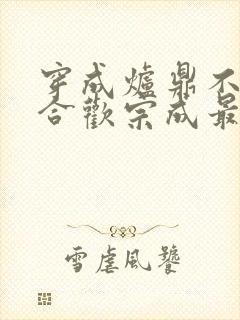 穿成爐鼎不
合歡宗成最
雪虐風饕